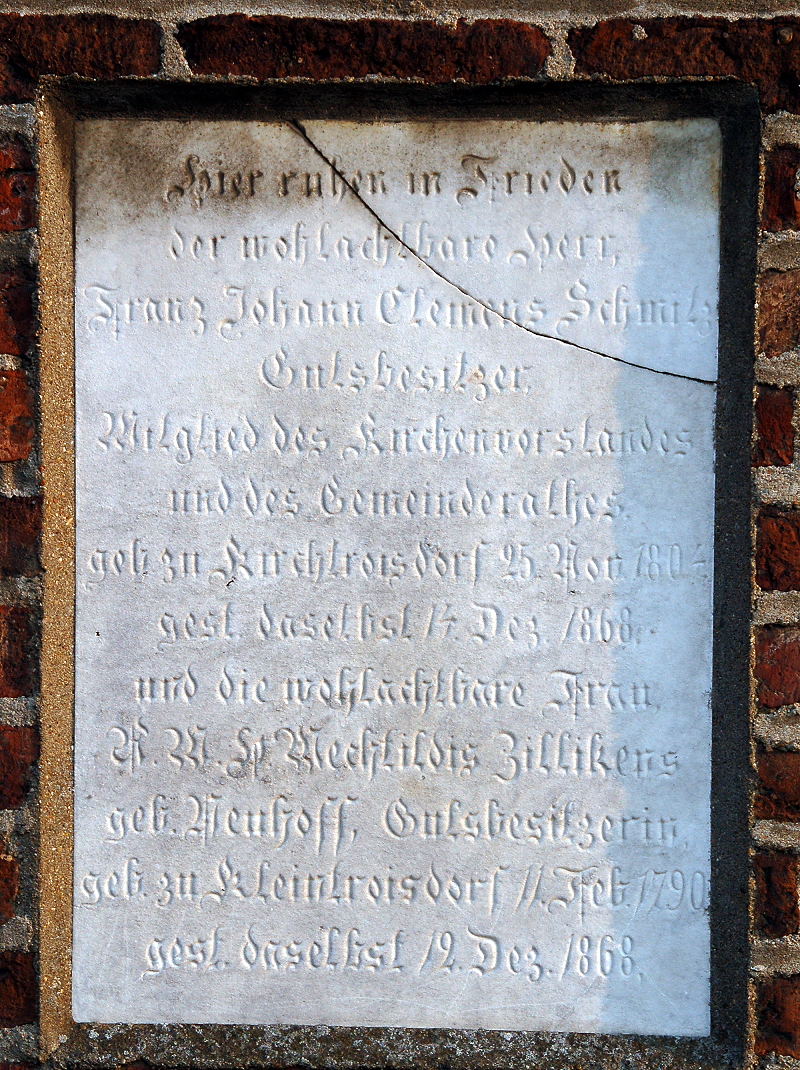 Hier ruhen in Frieden
der wohlachtbare Herr,
Franz Johann Clemens Schmitz
Gutsbesitzer,
Mitglied des Kirchenvorstandes
und des Gemeinderathes.
geb. zu Kirchtroisdorf 25. Nov. 1804
gest. daselbst 14. Dez. 1868.
und die wohlachtbare Frau,
A. M. H. Mechtildis Zillikens
geb. Neuhoff, Gutsbesitzerin,
geb. zu Kleintroisdorf 11. Feb. 1790
gest. daselbst 12. Dez. 1868.